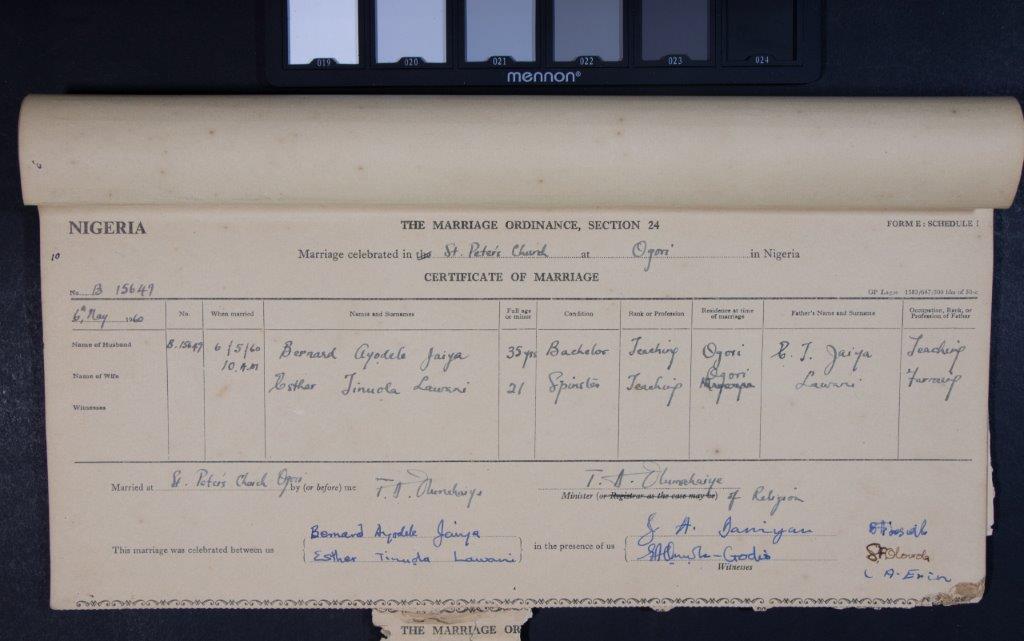 019 020 021 022 023 024
mennon®
NIGERIA
THE MARRIAGE ORDINANCE, SECTION 24
FORM E: SCHEDULE I
10
Marriage celebrated in the St. Peter's Church at Ogori in Nigeria
CERTIFICATE OF MARRIAGE
No. B 15649
GP Lagos
6th May 1960
No. When married Names and Surnames Full age or minor Condition Rank or Profession Residence at time of marriage Father's Name and Surname Occupation, Rank, or Profession of Father
Name of Husband B.15649 6/5/60 10 A.M Bernard Ayodele Jaiya 35 yrs Bachelor Teaching Ogori E. T. Jaiya Teaching
Name of Wife Esther Tinuola Lawani 21 Spinster Teaching Ogori Lawani Farming
Witnesses
Married at St. Peter's Church Ogori by (or before) me T. A. Olumekaiye T. A. Olumekaiye
Minister (or Registrar as the case may be) of Religion
This marriage was celebrated between us
Bernard Ayodele Jaiya
Esther Tinuola Lawani
in the presence of us
J. A. Daniyan
Witnesses
THE MARRIAGE OR